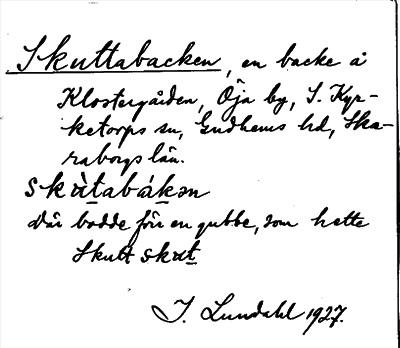 Skuttabacken, en backe å
Klostergården, Öja by, S. Kyr-
ketorps sn, Gudhems hd, Ska-
raborgs län.
skùtabákən
Där bodde förr en gubbe, som hette
Skutt skut
I. Lundahl 1927.